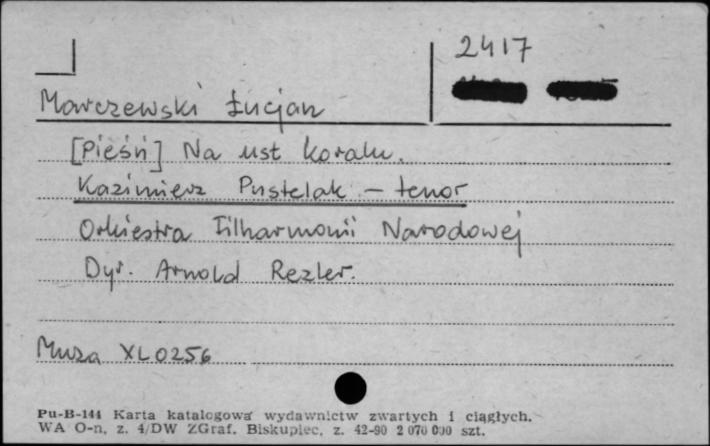 2417
Marczewski Łucjan
[Pieśń] Na ust koralu.
Kazimierz Pustelak – tenor
Orkiestra Filharmonii Narodowej
Dyr. Arnold Rezler.
Muza XL0256
Pu-B-144 Karta katalogowa wydawnictw zwartych i ciągłych.
WA O-n, z. 4/DW ZGraf. Biskupiec, z. 42-90 2 070 000 szt.